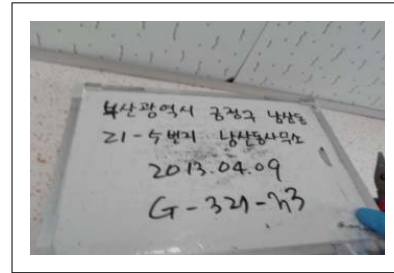 부산광역시 금정구 남산동
21-5번지 남산동사무소
2013.04.09
G-321-h3